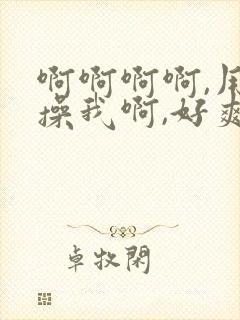 啊啊啊啊,
操我啊,好爽
卓牧闲